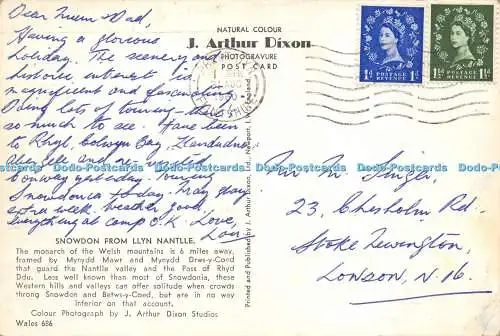 Dear Mum & Dad,
Having a glorious
holiday. The scenery and
historic interest is
magnificent and fascinating
Doing lots of touring - there's
so much to see. Have been
to Rhyl, Colwyn Bay, Llandudno
Abergele and re-visited
Conway yesterday. Touring
Snowdonia today. May stay
extra week. Weather good.
Everything at camp O.K. Love,
SNOWDON FROM LLYN NANTLLE.
The monarch of the Welsh mountains is 6 miles away,
framed by Mynydd Mawr and Mynydd Drws-y-Coed
that guard the Nantlle valley and the Pass of Rhyd
Ddu. Less well known than most of Snowdonia, these
Western hills and valleys can offer solitude when crowds
throng Snowdon and Betws-y-Coed, but are in no way
inferior on that account.
Colour Photograph by J. Arthur Dixon Studios
Wales 686
NATURAL COLOUR
J. Arthur Dixon
PHOTOGRAVURE
POST CARD
FLINTSHIRE
Printed and Published by J. Arthur Dixon Ltd., Newport, England.
POSTAGE REVENUE
1D 1D
POSTAGE REVENUE
1½D 1½D
23, Chesholm Rd.
Stoke Newington,
LONDON, N.16.
Dodo-Postcards Dodo-Postcards Dodo-Postcards Dodo-Postcards Dodo-Postcards